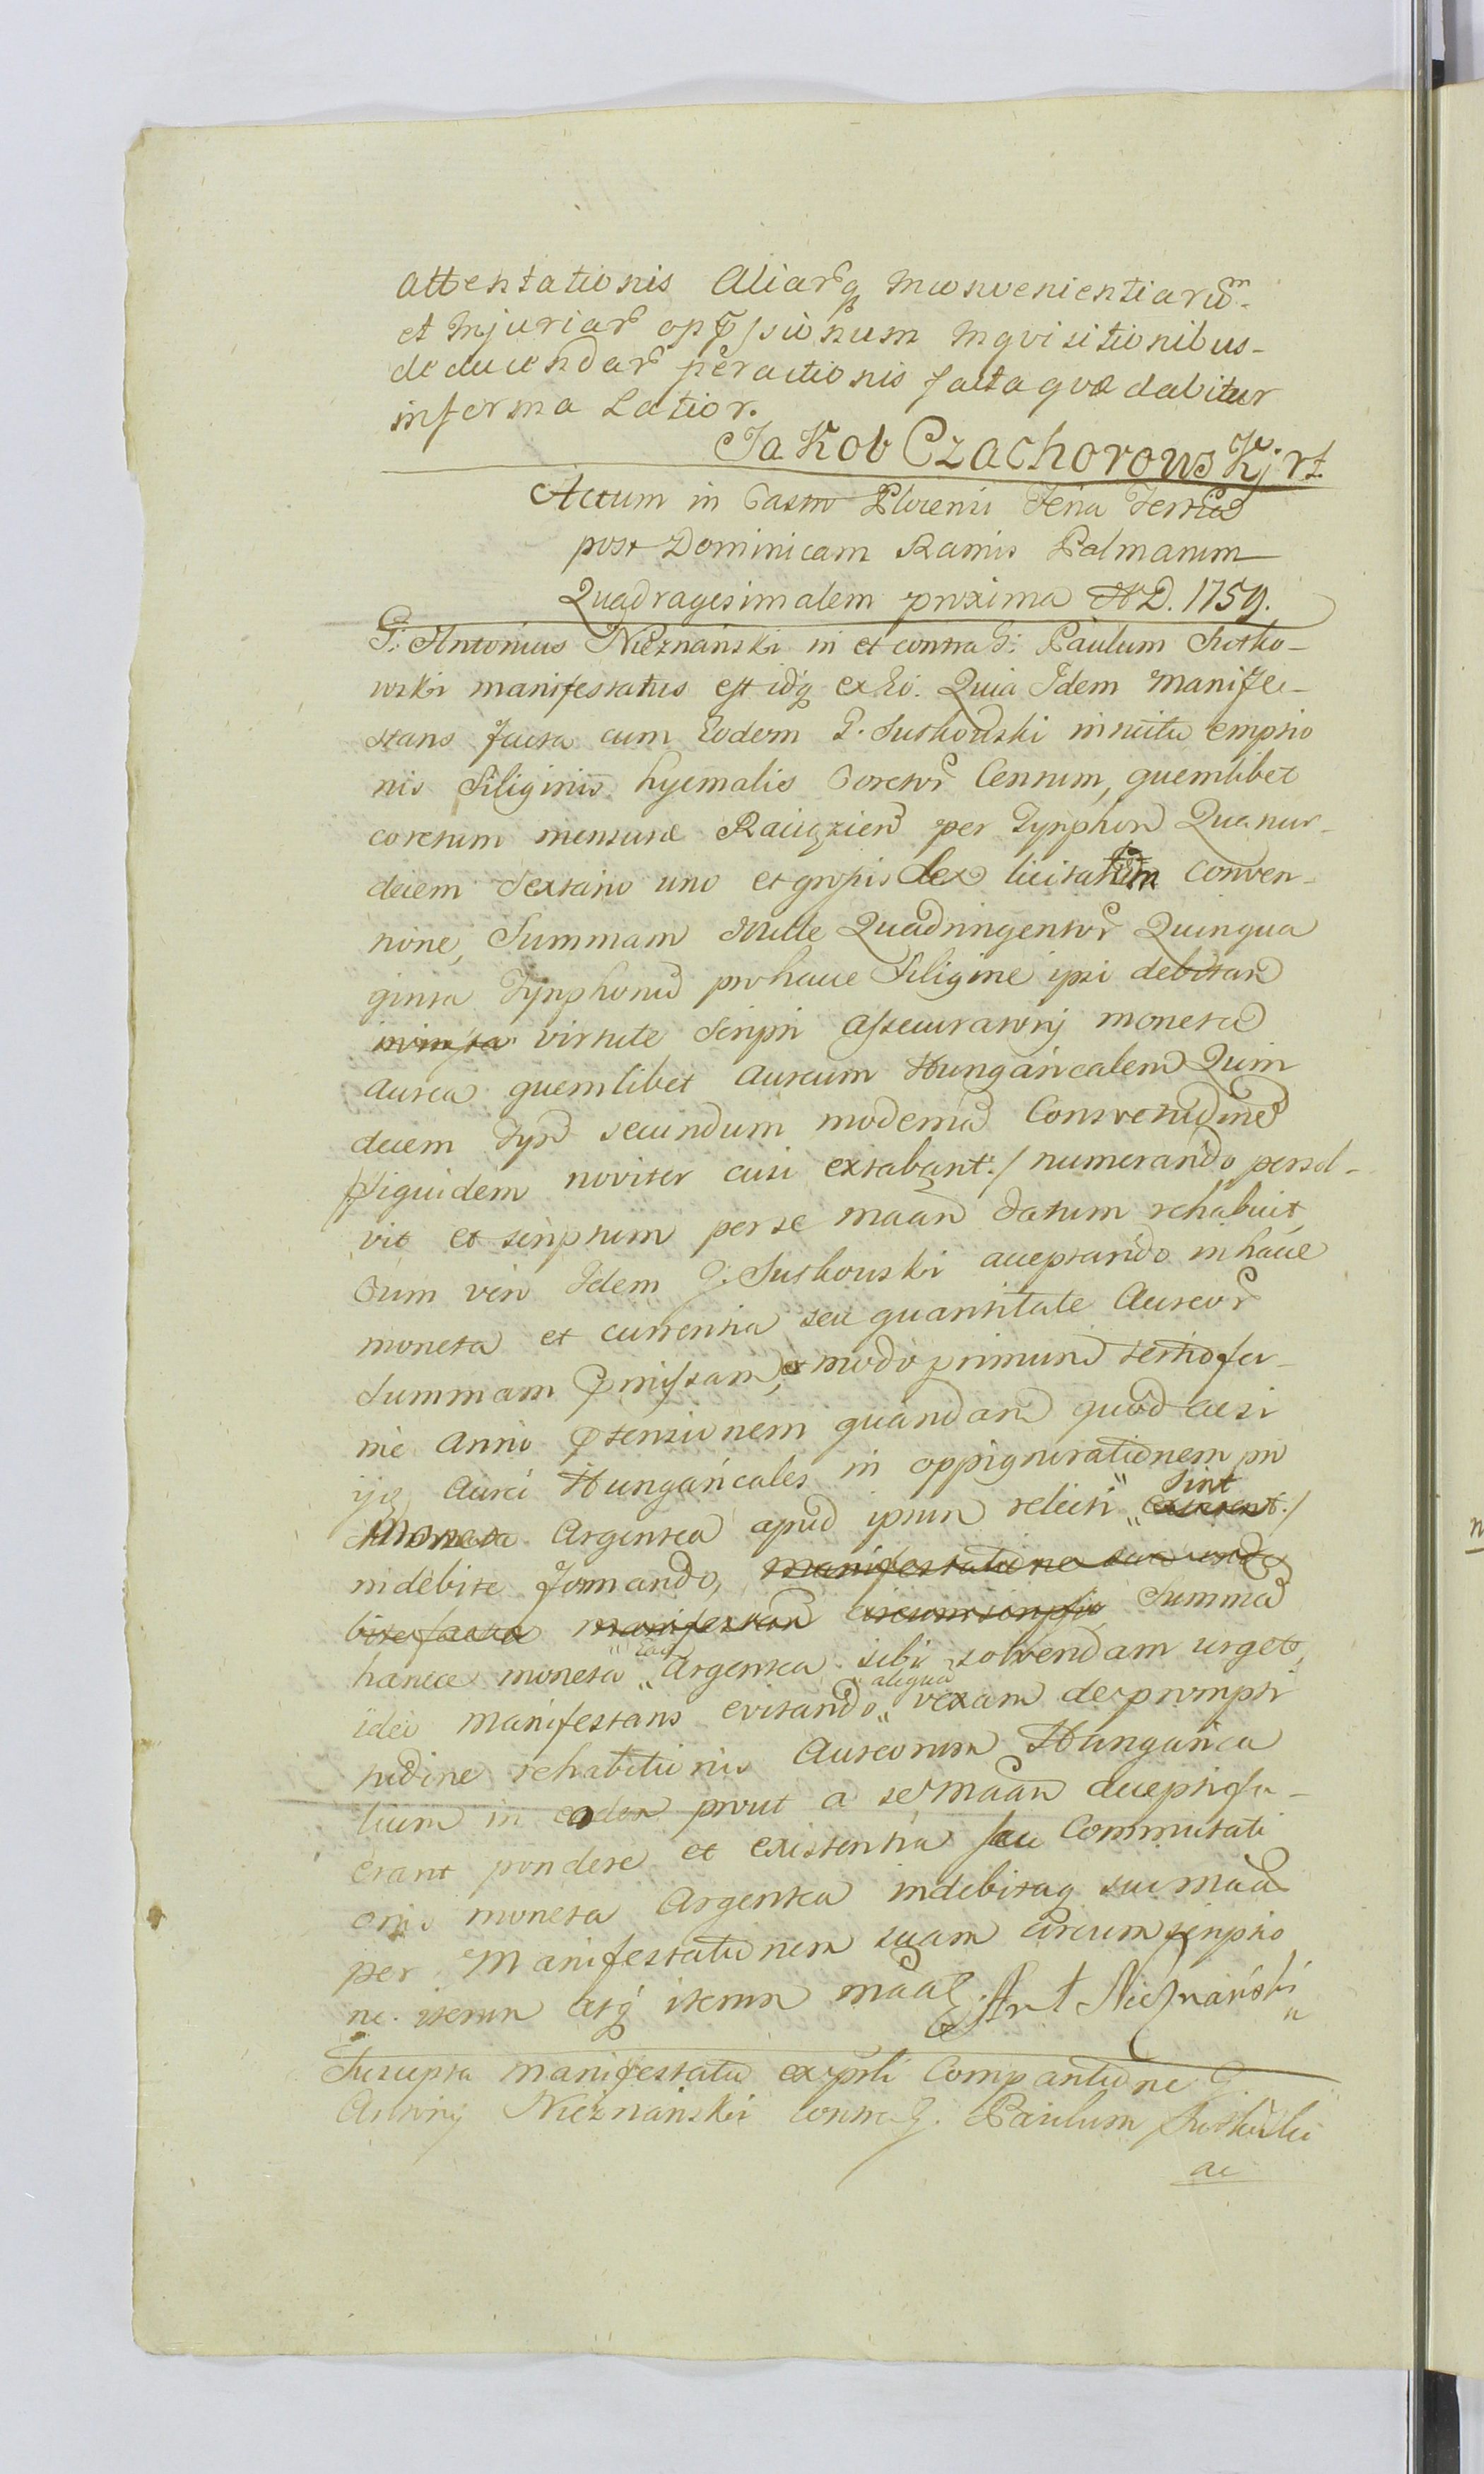 attentationis Aliarq inconvenientiarum
et injuriar oppssionum inqvisitionibus
deducendar peractionis facta qvæ dabitur
in forma Latior.
Jakob Czachorowski rt
Actum in Castro Plocensi Feria Tertia
post Dominicam Ramis Palmarum
Quadragesimalem proxima A D. 1759.
G: Antonius Nieznański in et contra G: Paulum Sutko-
wski manifestatus est idq ex Eo. Quia Idem Manife-
stans facta cum Eodem G. Sutkowski intuitu emptio
nis Siliginis hyemalis Coretor Centum, quemlibet
coretum mensuræ Raciązien per Tynphon Quatuor-
decim Sextario uno et grossis sex licitatum Conven-
tione, Summam Mille Quadringentor Quinqua
ginta Tynphonu pro hacce Siligine ipsi debitan
virtute Scripti assecuratorij moneta
aurea quemlibet Aureum Hungaricalem Quin
decem Tyn secundum moderna Consvetudine
/siquidem noviter cusi extabant:/ numerando persol-
vit et scriptum per se maan datum rehabuit,
Cum vero Idem G: Sutkowski acceptando in hacce
moneta et currentia seu quantitate Aureor
Summam pmissam, et modo primum tertio fer-
me anno ptensionem quandam quod acsi
ijq Aurei Hungaricales in oppignorationem pro
Moneta Argentea apud ipsum relicti sint extarent:/
indebite formando, manifestatione sua inde
bite facta manifestan circumscripta Summa
hancce moneta Eaq Argentea sibi solvendam urget,
ideo Manifestans evitando aliqua vexam de promptı
tudine rehabitionis Aureorum Hungarica
lium in eoden prout a se maan accepti fu-
erant pondere et existentia seu Commutati
onis moneta Argentea indebitaq sui maa
per Manifestationem suam circumscriptio
ne iterum atq iterum maa Ant Nieznański
Suscepta manifestatio ex psli Comparitione G.
Antonij Nieznański contra G. Paulum Sutkowski
ac